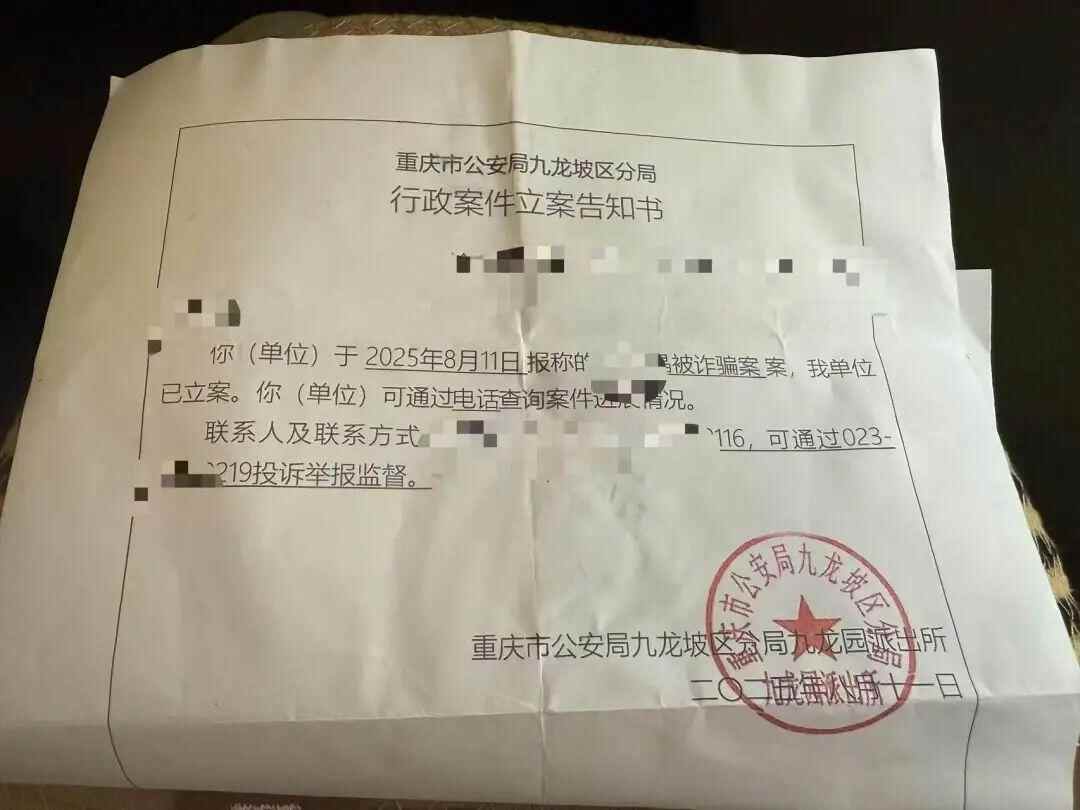 重庆市公安局九龙坡区分局
行政案件立案告知书
你（单位）于 2025年8月11日 报称的 被诈骗案 案，我单位
已立案。你（单位）可通过电话查询案件进展情况。
联系人及联系方式 116，可通过023-
219投诉举报监督。
重庆市公安局九龙坡区分局
重庆市公安局九龙坡区分局九龙园派出所
二〇二五年八月十一日
九龙园派出所